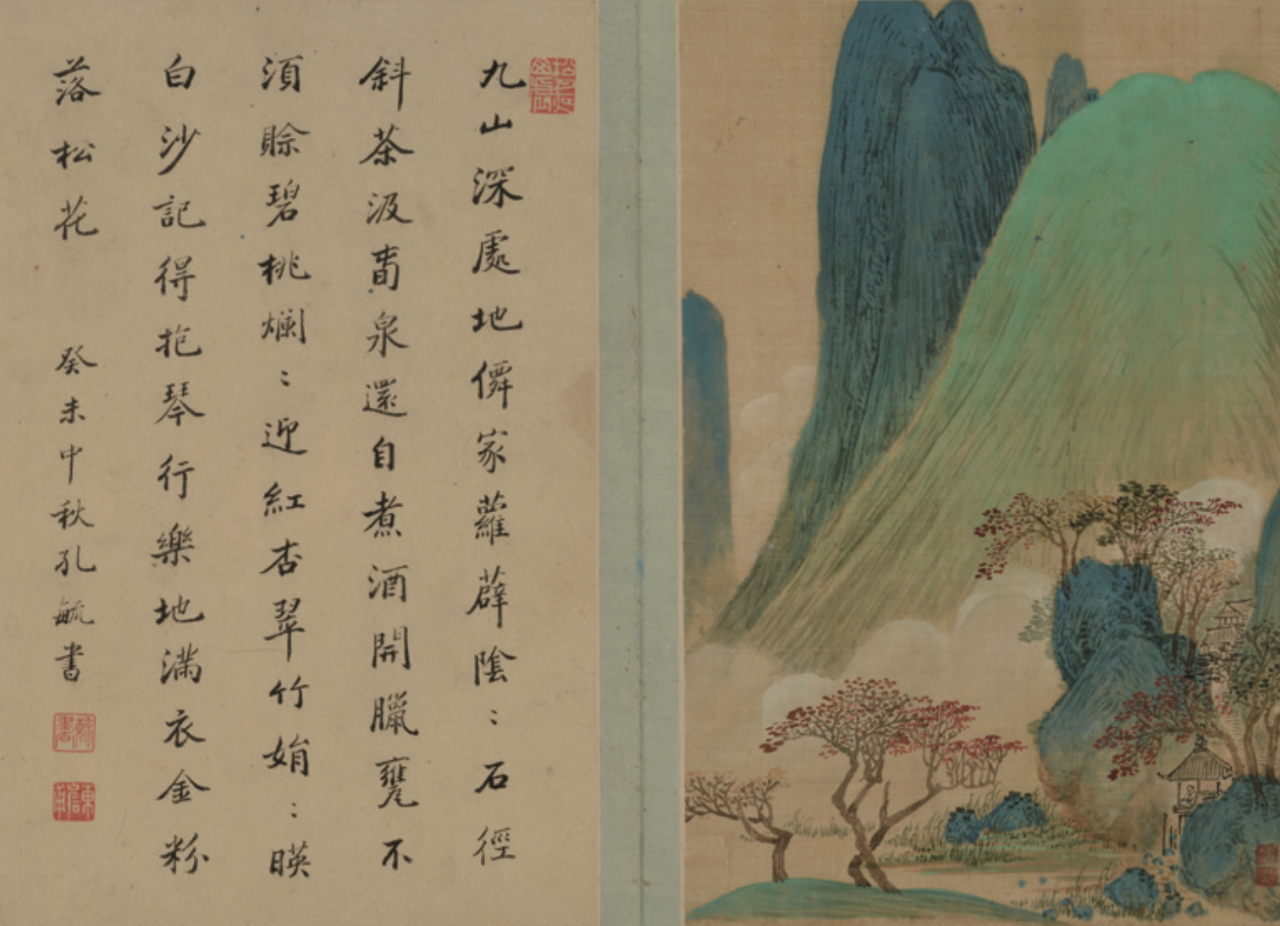 九山深處地僻家蘿薜陰：石徑
斜茶汲冑泉還自煮酒開臘甕不
須賒碧桃爛：迎紅杏翠竹娟：暎
白沙記得抱琴行樂地滿衣金粉
落松花
癸未中秋孔毓書